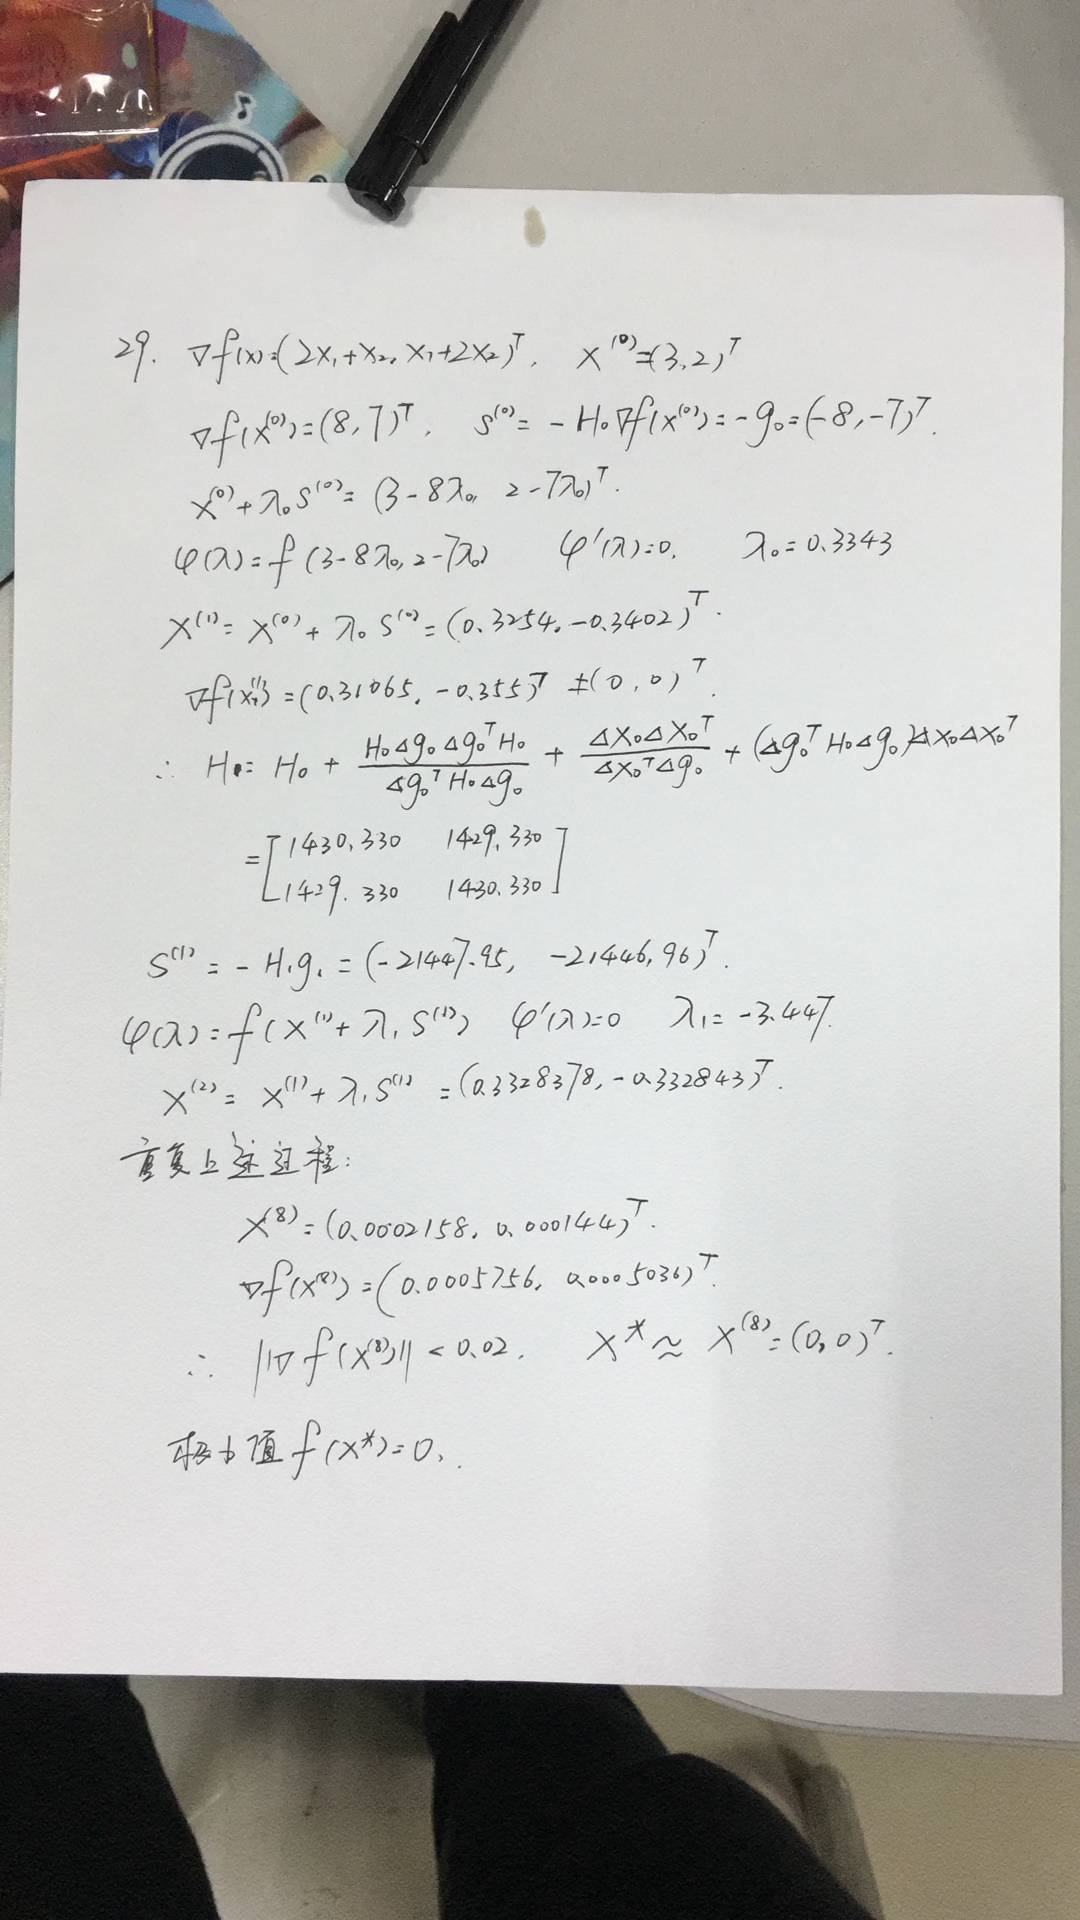 29. ∇f(x)=(2x₁+x₂, x₁+2x₂)ᵀ, X⁽⁰⁾=(3,2)ᵀ
∇f(X⁽⁰⁾)=(8,7)ᵀ, S⁽⁰⁾= -H₀∇f(X⁽⁰⁾)=-g₀=(-8,-7)ᵀ.
X⁽⁰⁾+λ₀S⁽⁰⁾=(3-8λ₀, 2-7λ₀)ᵀ.
φ(λ)=f(3-8λ₀,2-7λ₀) φ'(λ)=0, λ₀=0.3343
X⁽¹⁾=X⁽⁰⁾+λ₀S⁽⁰⁾=(0.3254,-0.3402)ᵀ.
∇f(X⁽¹⁾)=(0.31065,-0.355)ᵀ ≠(0,0)ᵀ.
∴ H₁= H₀ + H₀Δg₀Δg₀ᵀH₀/Δg₀ᵀH₀Δg₀ + ΔX₀ΔX₀ᵀ/ΔX₀ᵀΔg₀ + (Δg₀ᵀH₀Δg₀)ΔX₀ΔX₀ᵀ
=[1430.330 1429.330
1429.330 1430.330]
S⁽¹⁾=-H₁g₁=(-21447.95, -21446.96)ᵀ.
φ(λ)=f(X⁽¹⁾+λ₁S⁽¹⁾) φ'(λ)=0 λ₁=-3.447.
X⁽²⁾=X⁽¹⁾+λ₁S⁽¹⁾=(0.3328378,-0.332843)ᵀ.
重复上述过程:
X⁽⁸⁾=(0.0002158, 0.000144)ᵀ.
∇f(X⁽⁸⁾)=(0.0005756, 0.0005036)ᵀ.
∴ ||∇f(X⁽⁸⁾)||<0.02. X*≈X⁽⁸⁾=(0,0)ᵀ.
极小值f(X*)=0.